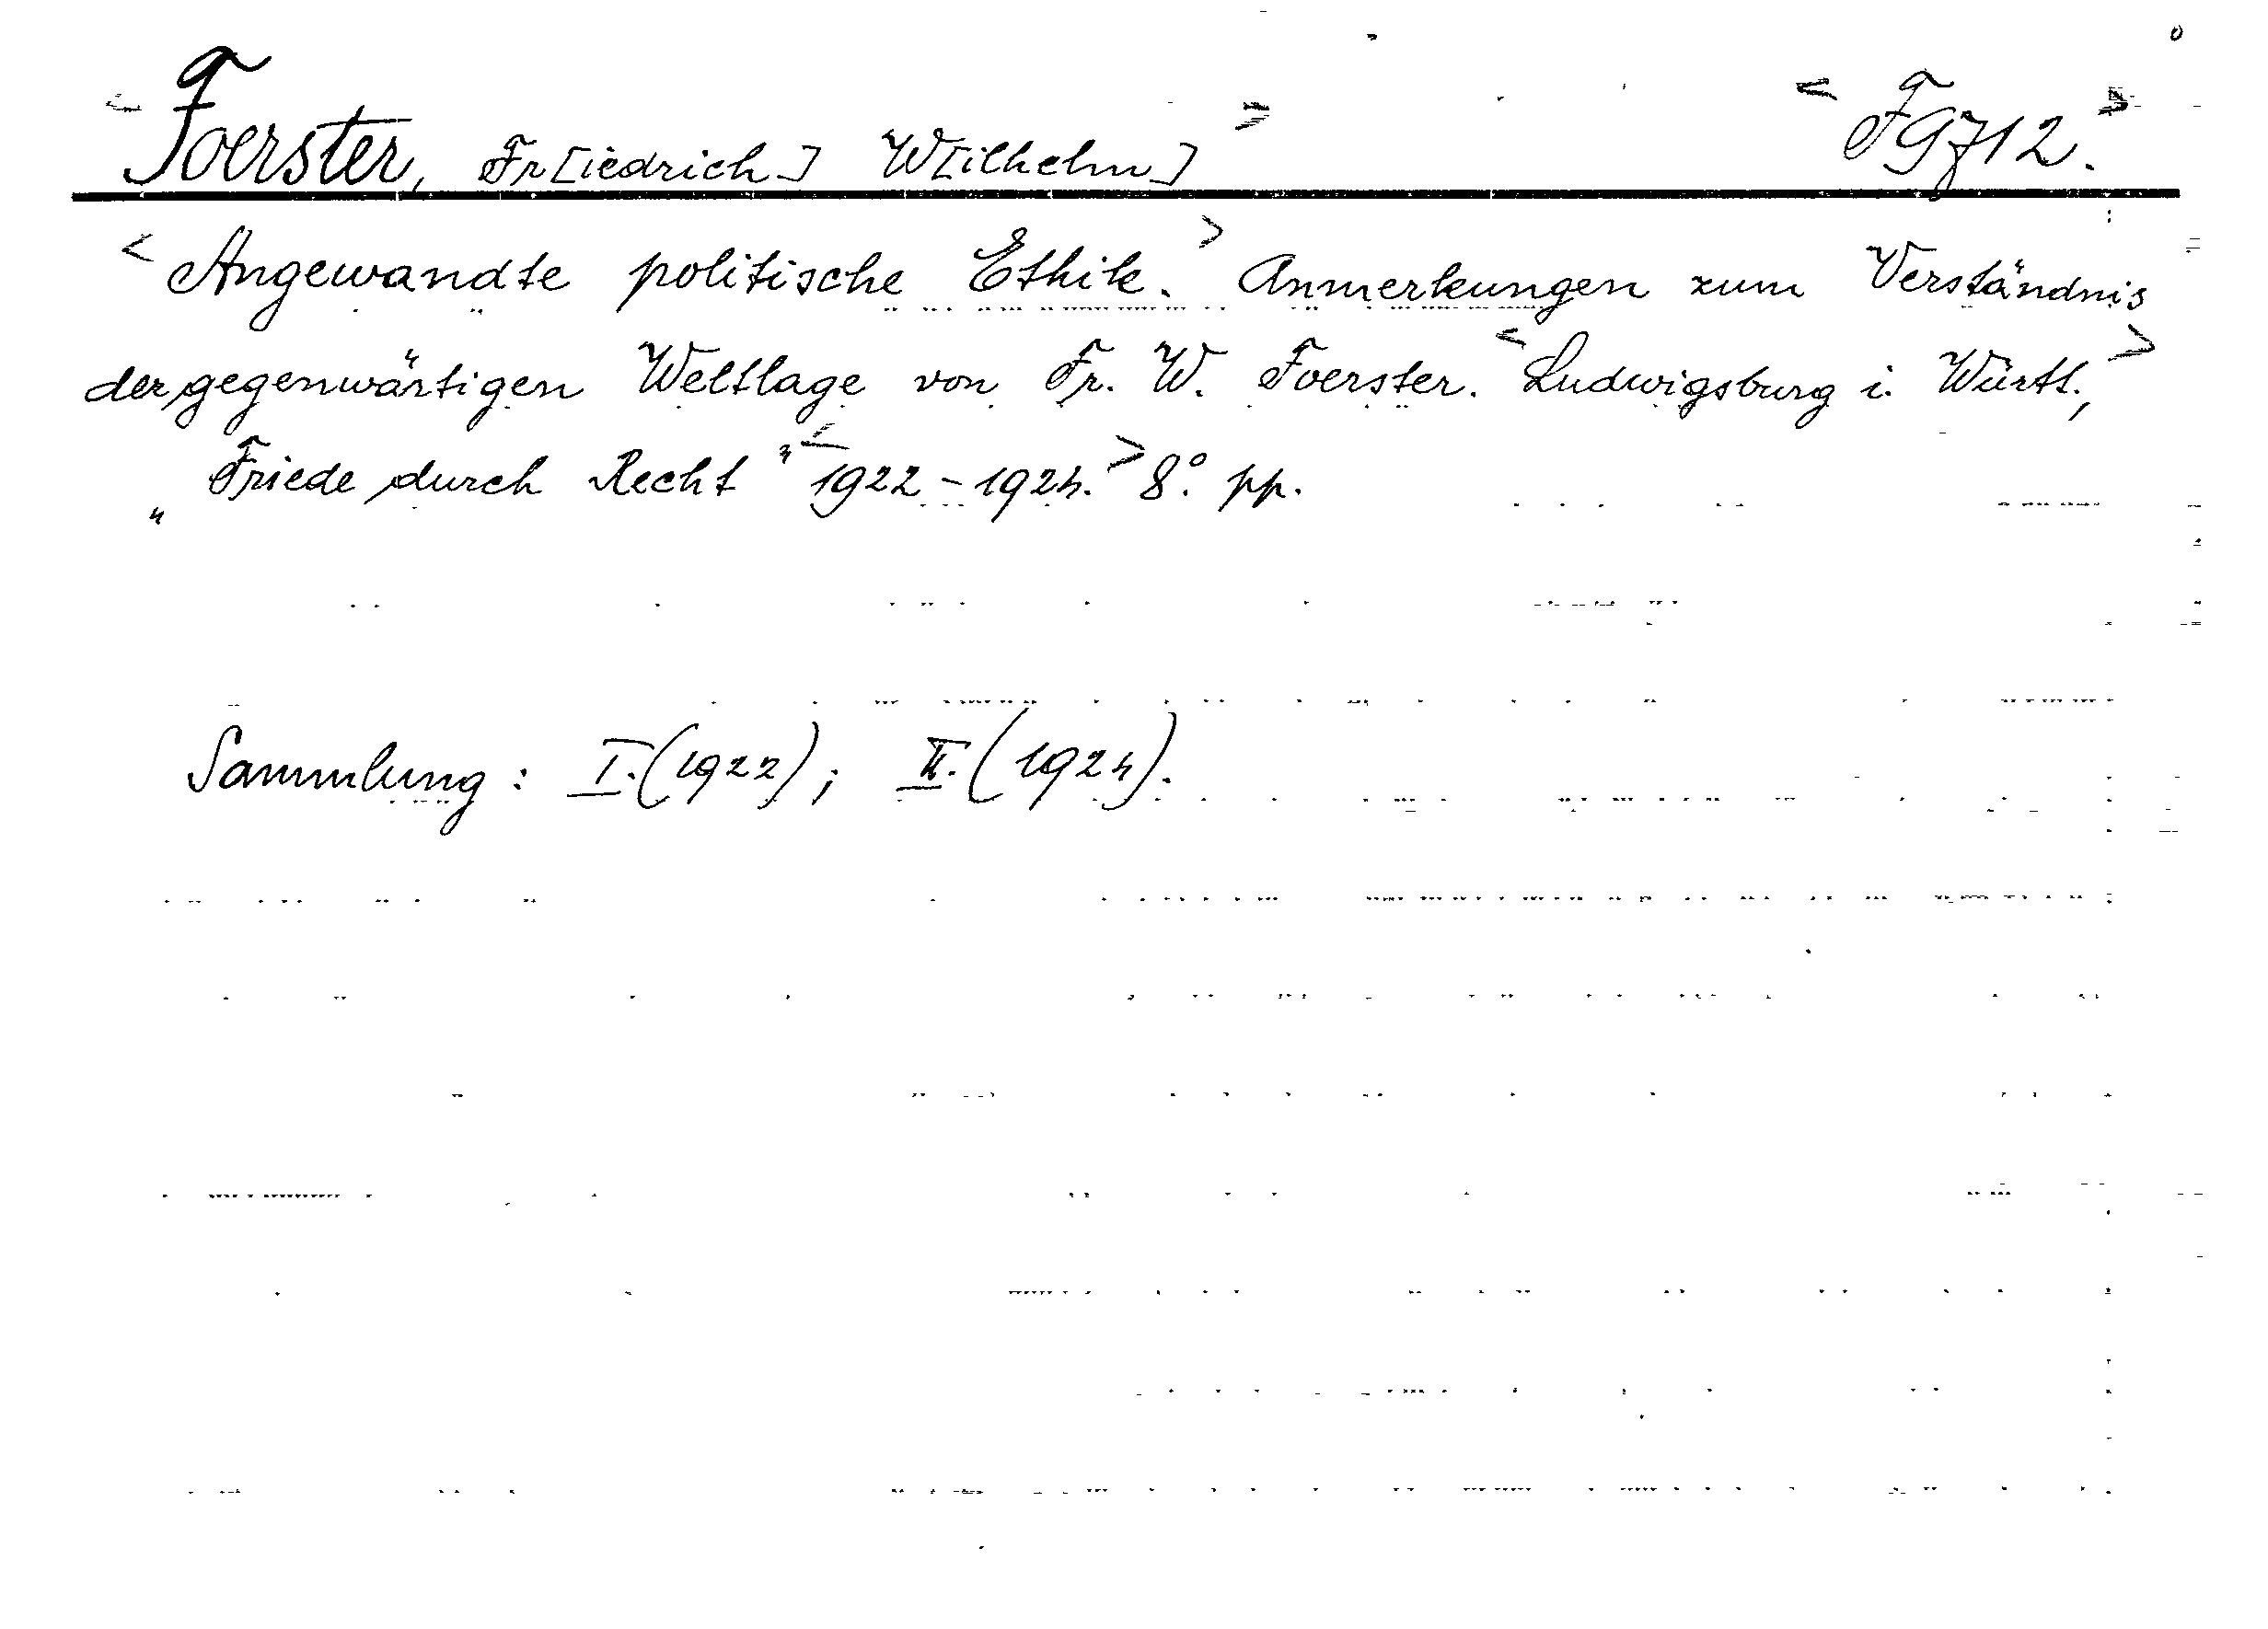 < Foerster, Fr[iedrich] W[ilhelm] > < F9712. >
< Angewandte politische Ethik. > Anmerkungen zum Verständnis
der gegenwärtigen Weltlage von Fr. W. Foerster. < Ludwigsburg i. Württ., >
„Friede durch Recht" < 1922-1924. > 8°. pp.
Sammlung: I. (1922); II. (1924).